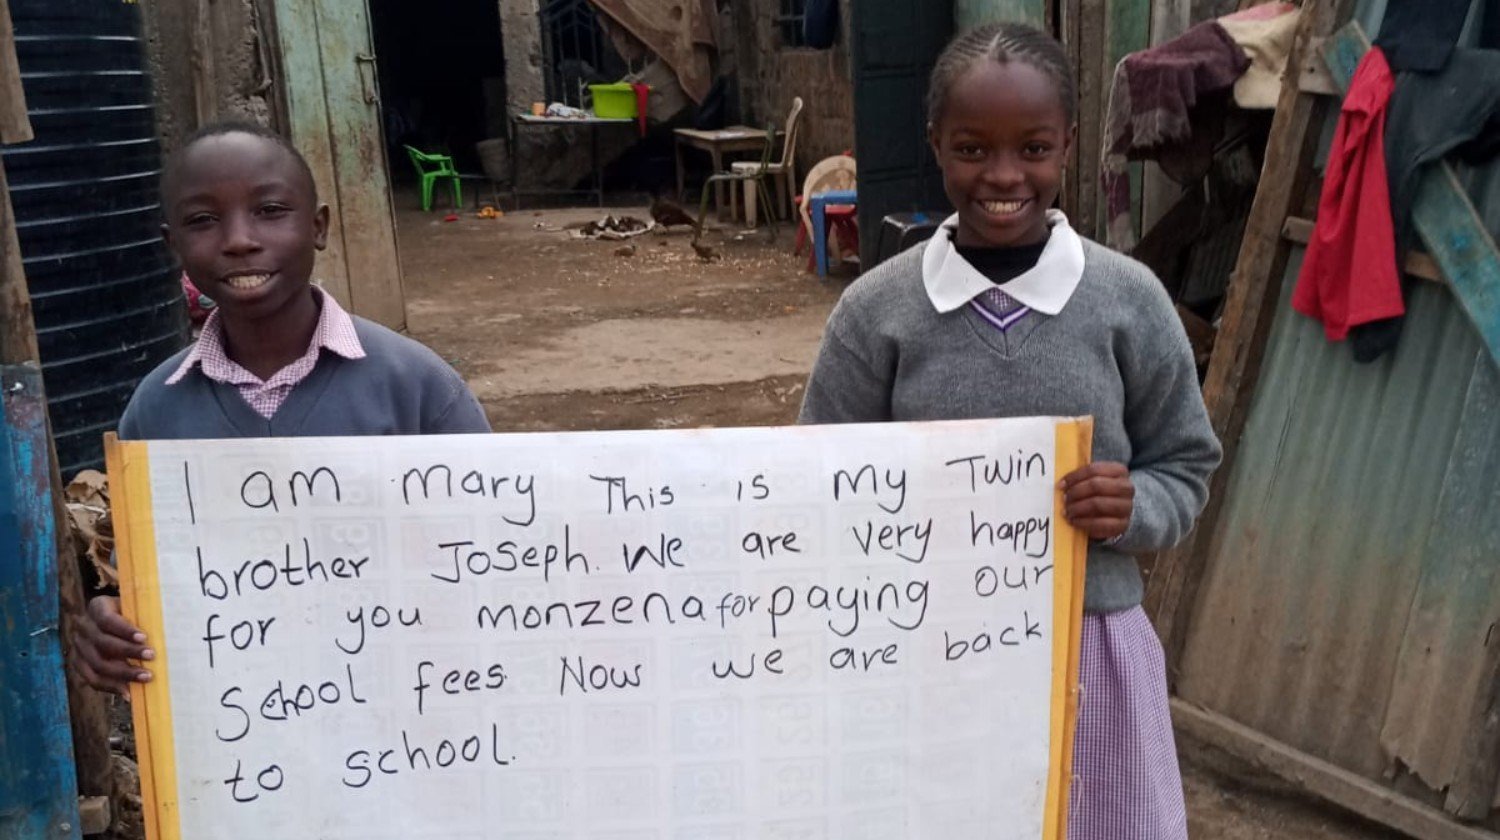 I am mary This is my Twin
brother Joseph. We are very happy
for you monzena for paying our
School fees. Now we are back
to school.